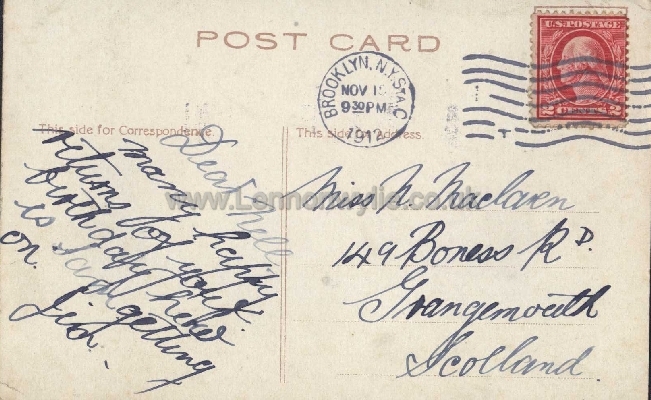 POST CARD
U.S. POSTAGE
2 CENTS 2
BROOKLYN, N.Y. STA. C
NOV 1
9 30 PM
1912
This side for Correspondence.
This side for Address.
www.Lennoxwylie.co.uk
Dear Nell
many happy
returns of your
birthday
is Dad
getting
on.
Jim.
Miss N. Maclaren
149 Boness Rd.
Grangemouth
Scotland.